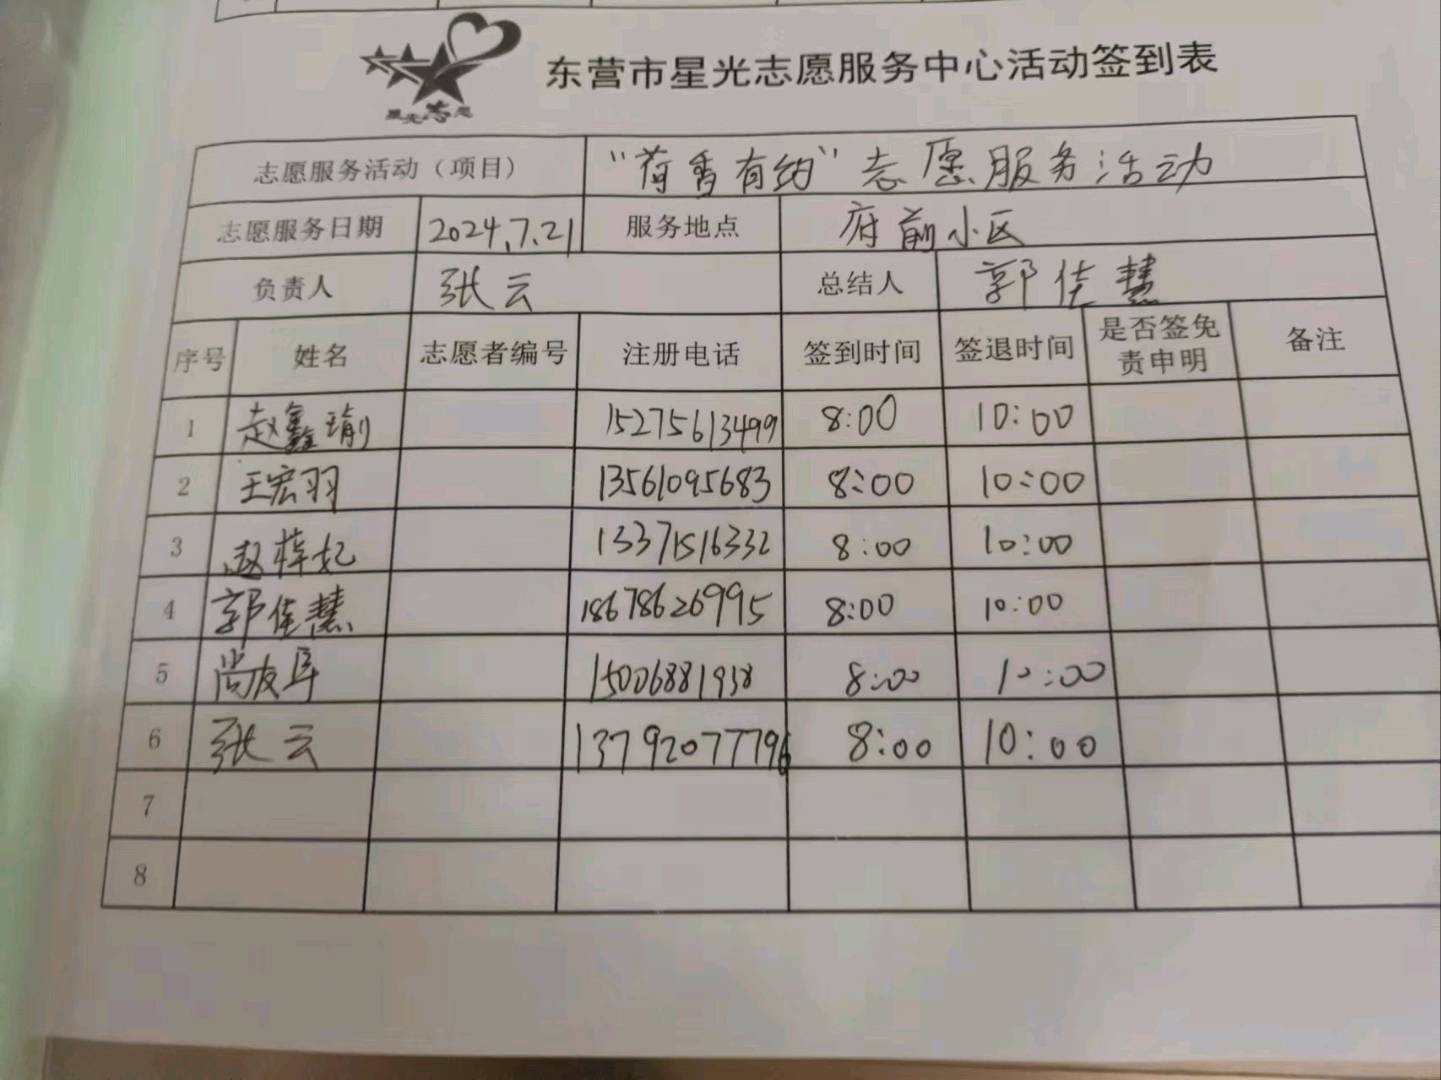 东营市星光志愿服务中心活动签到表
志愿服务活动（项目） “荷香有约”志愿服务活动
志愿服务日期 2024.7.21 服务地点 府前小区
负责人 张云 总结人 郭佳慧
序号 姓名 志愿者编号 注册电话 签到时间 签退时间 是否签免责申明 备注
1 赵鑫瑜 15275613499 8:00 10:00
2 王宏羽 13561095683 8:00 10:00
3 赵梓妃 13371516332 8:00 10:00
4 郭佳慧 18678626995 8:00 10:00
5 尚友 15006881938 8:00 10:00
6 张云 13792077796 8:00 10:00
7
8